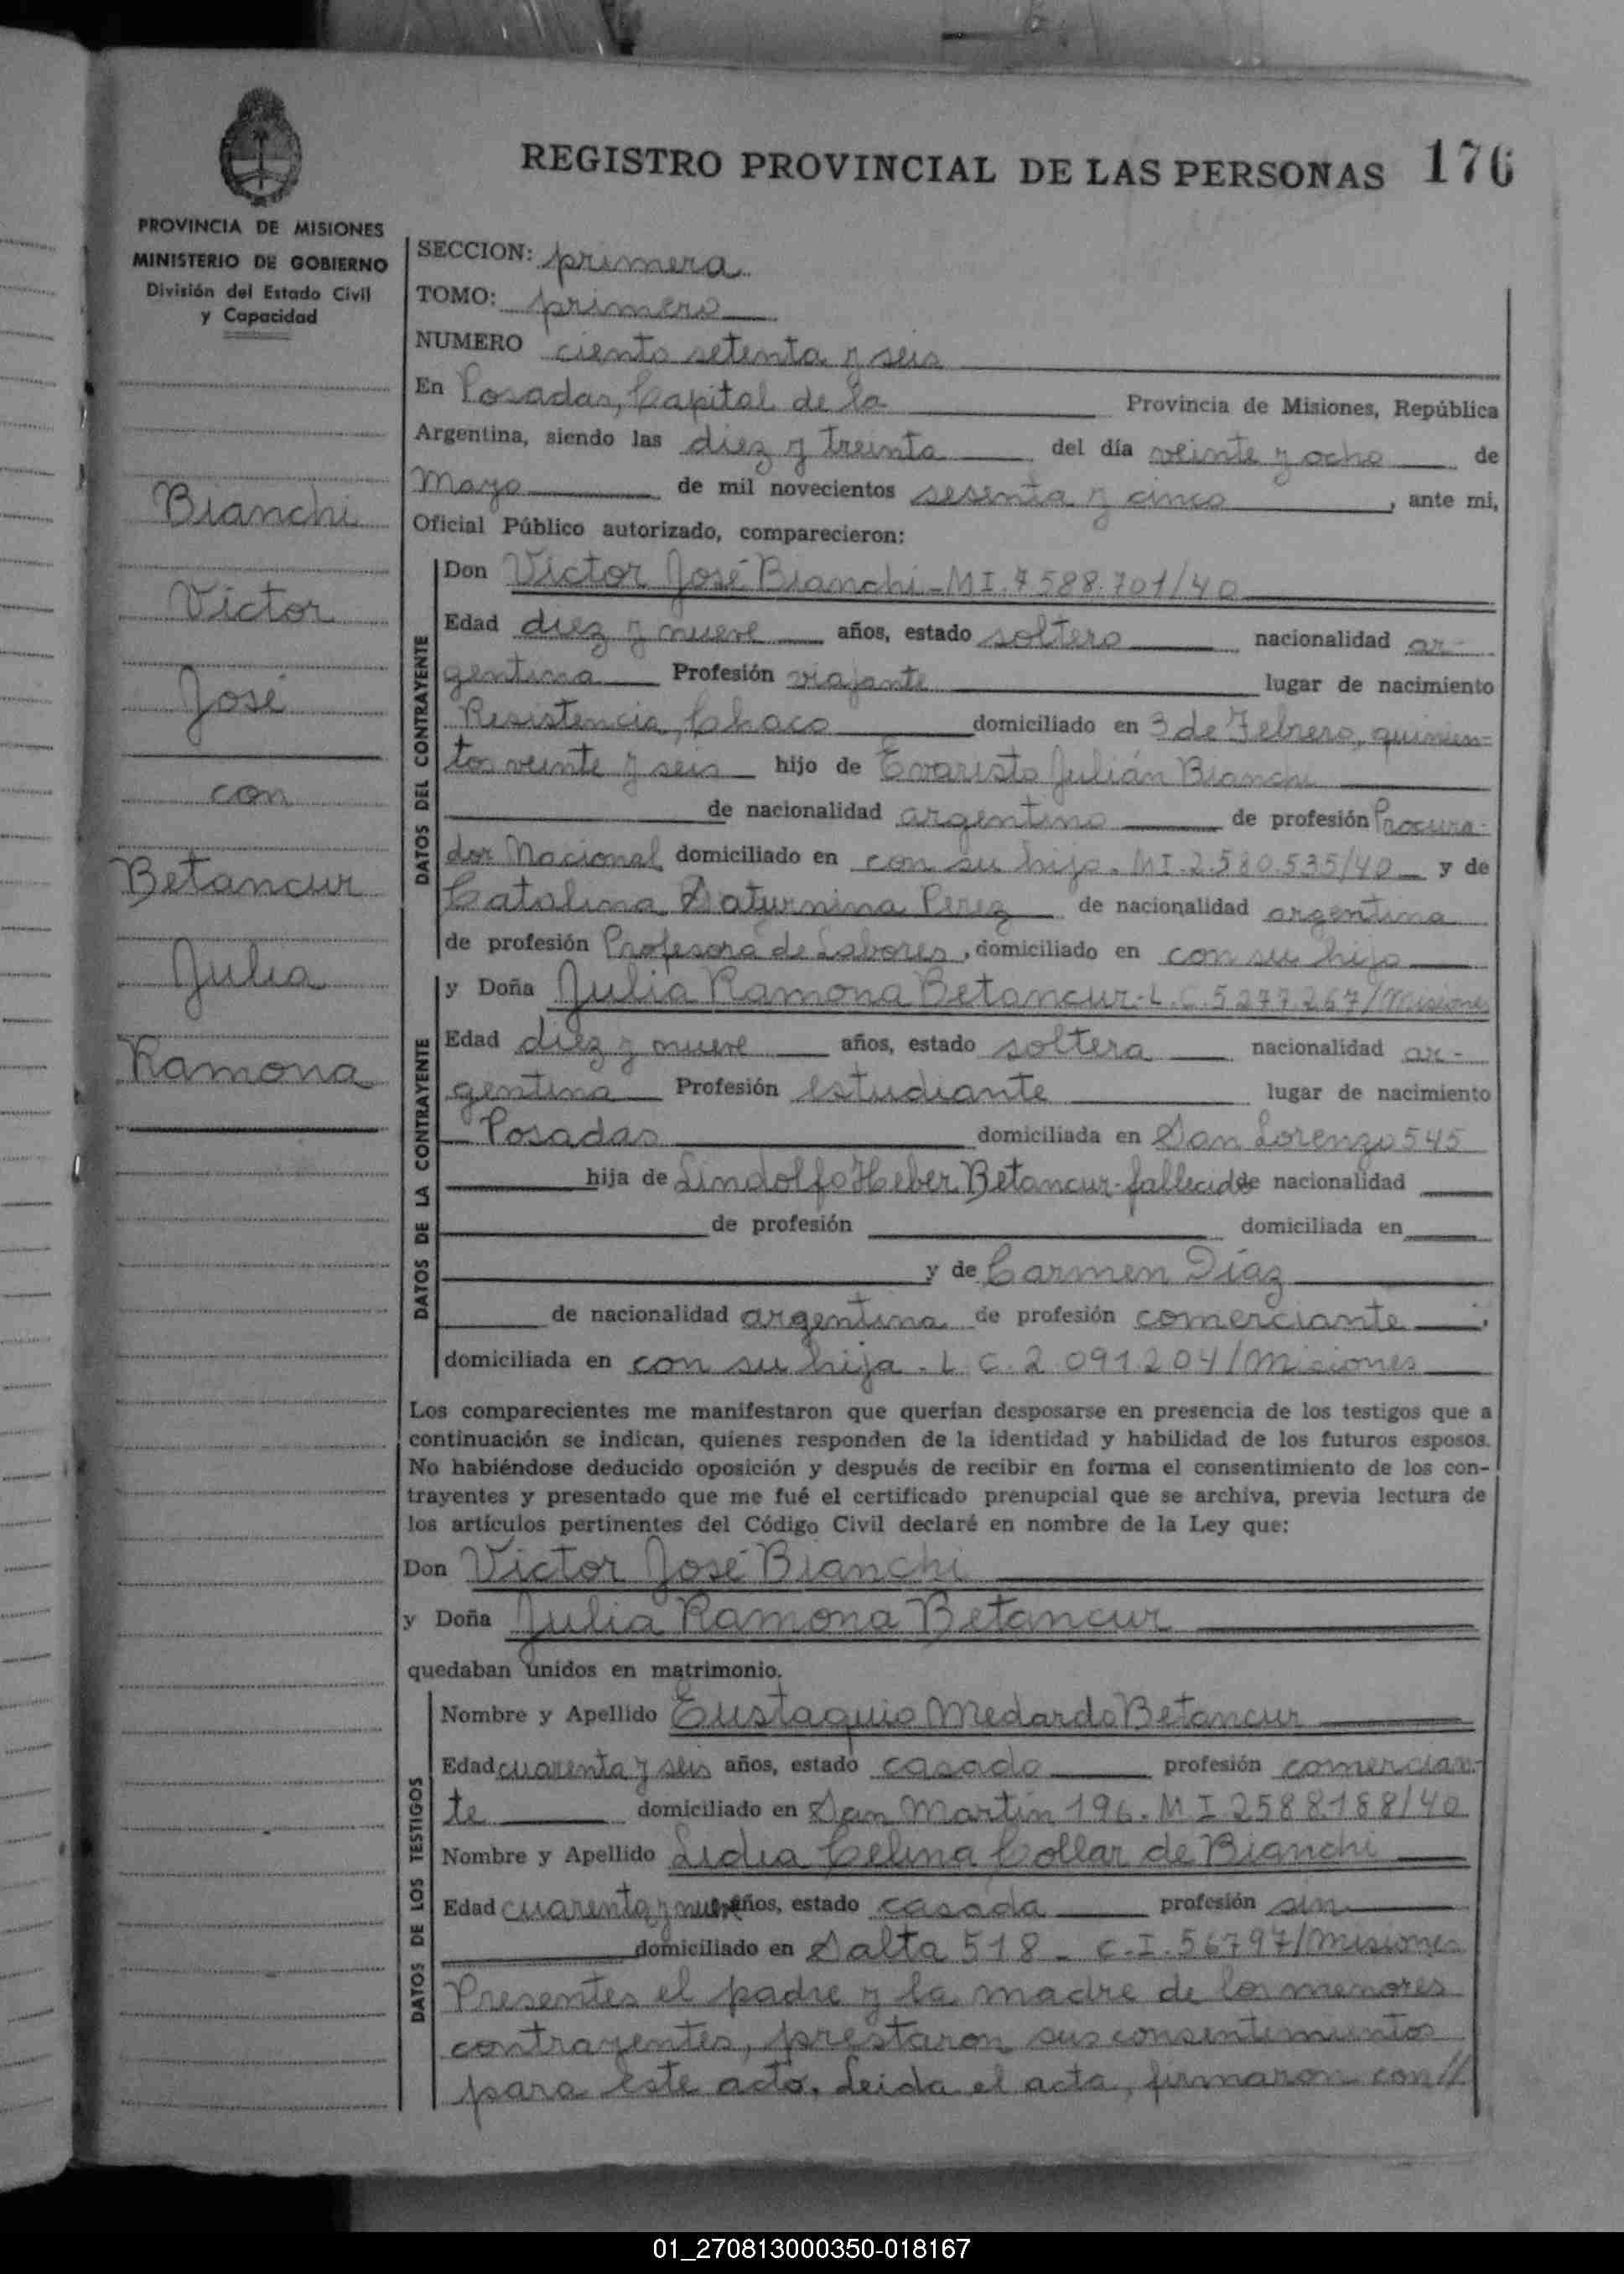 REGISTRO PROVINCIAL DE LAS PERSONAS 176
PROVINCIA DE MISIONES
MINISTERIO DE GOBIERNO
División del Estado Civil
y Capacidad
Bianchi
Victor
José
con
Betancur
Julia
Ramona
SECCION: primera
TOMO: primero
NUMERO ciento setenta y seis
En Posadas, Capital de la Provincia de Misiones, República
Argentina, siendo las diez y treinta del día veinte y ocho de
Mayo de mil novecientos sesenta y cinco, ante mi,
Oficial Público autorizado, comparecieron:
DATOS DEL CONTRAYENTE
Don Victor José Bianchi - MI. 7588.701/40
Edad diez y nueve años, estado soltero nacionalidad ar-
gentina Profesión viajante lugar de nacimiento
Resistencia, Chaco domiciliado en 3 de Febrero, quinien-
tos veinte y seis hijo de Evaristo Julián Bianchi
de nacionalidad argentino de profesión Procura-
dor Nacional domiciliado en con su hijo. MI. 2.580.535/40 y de
Catalina Saturnina Perez de nacionalidad argentina
de profesión Profesora de Labores, domiciliado en con su hijo
DATOS DE LA CONTRAYENTE
y Doña Julia Ramona Betancur - L.C. 5.277.267/Misiones
Edad diez y nueve años, estado soltera nacionalidad ar-
gentina Profesión estudiante lugar de nacimiento
Posadas domiciliada en San Lorenzo 545
hija de Lindolfo Heber Betancur - fallecido de nacionalidad
de profesión domiciliada en
y de Carmen Díaz
de nacionalidad argentina de profesión comerciante;
domiciliada en con su hija. L.C. 2.091.204/Misiones
Los comparecientes me manifestaron que querían desposarse en presencia de los testigos que a
continuación se indican, quienes responden de la identidad y habilidad de los futuros esposos.
No habiéndose deducido oposición y después de recibir en forma el consentimiento de los con-
trayentes y presentado que me fué el certificado prenupcial que se archiva, previa lectura de
los artículos pertinentes del Código Civil declaré en nombre de la Ley que:
Don Victor José Bianchi
y Doña Julia Ramona Betancur
quedaban unidos en matrimonio.
DATOS DE LOS TESTIGOS
Nombre y Apellido Eustaquio Medardo Betancur
Edad cuarenta y seis años, estado casado profesión comercian-
te domiciliado en San Martín 196. M I 2588188/40
Nombre y Apellido Lidia Celina Collar de Bianchi
Edad cuarenta y nueve años, estado casada profesión sin
domiciliado en Salta 518 - C.I. 56797/Misiones
Presentes el padre y la madre de los menores
contrayentes, prestaron sus consentimientos
para este acto. Leida el acta, firmaron con//
01_270813000350-018167